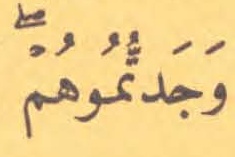 وَجَدتُّمُوهُمْۖ